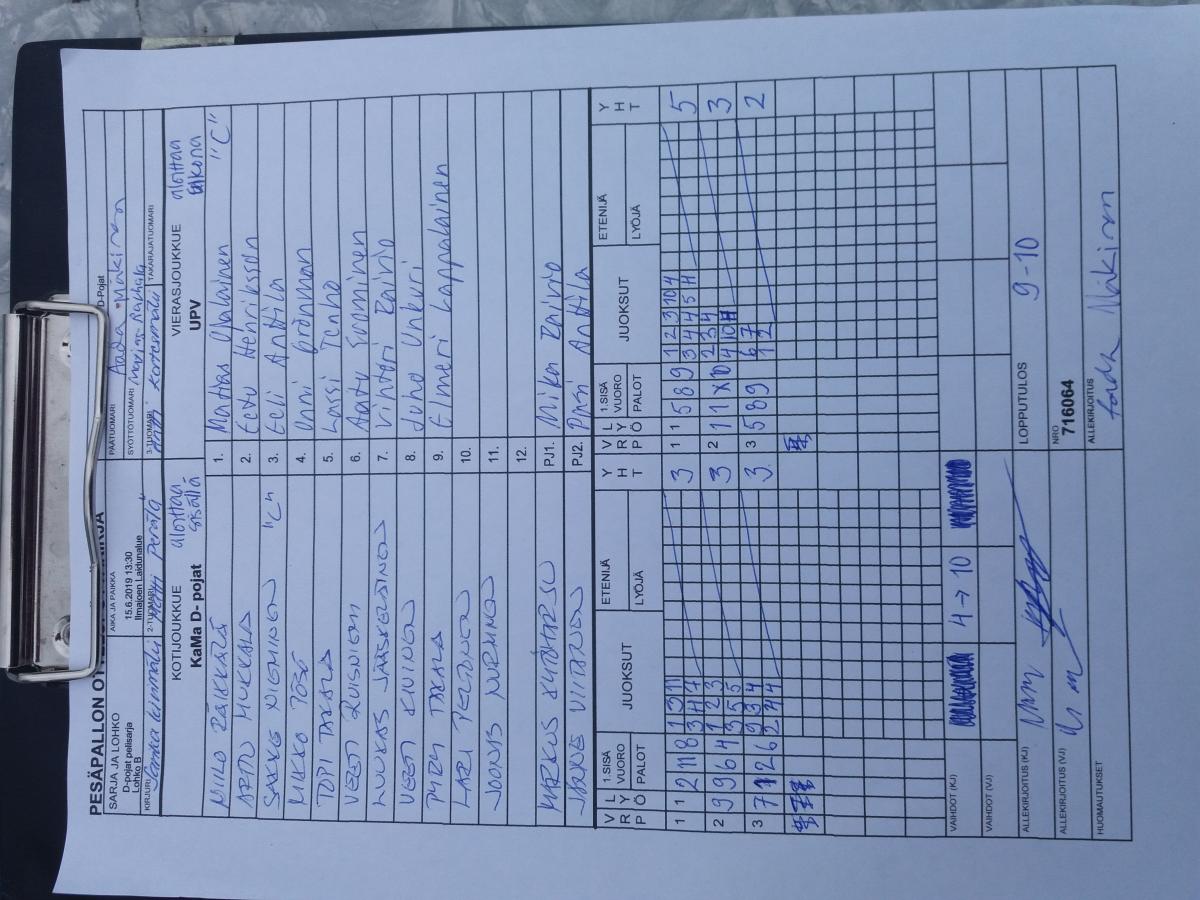 PESÄPALLON OTTELUPÖYTÄKIRJA
SARJA JA LOHKO
D-pojat pelisarja
Lohko B
AIKA JA PAIKKA
15.6.2019 13:30
Ilmajoen Laidunalue
PÄÄTUOMARI
Aada Mäkinen
D-Pojat
SYÖTTÖTUOMARI
KIRJURI
2-TUOMARI
Perälä
3-TUOMARI
TAKARAJATUOMARI
KOTIJOUKKUE
aloittaa sisällä
KaMa D- pojat
VIERASJOUKKUE
aloittaa ulkona
UPV
NIILO
1. Matias "C"
ARTTU HUKKALA
2. Eetu Henriksson
SAKKE NIEMINEN "C"
3. Eeli Anttila
MIKKO
4. Onni
TOPI TAKALA
5. Lassi Tenho
VEETI RUISNIEMI
6. Aatu Summinen
LUUKAS JÄÄSKELÄINEN
7. Vihtori Rainio
VEETI KIVINEN
8. Juho Unkuri
TAKALA
9. Elmeri Lappalainen
LARI PELTONEN
10.
JOONAS NURMINEN
11.
12.
MARKUS
PJ1. Mika Rainio
VIITANEN
PJ2. Pasi Anttila
V R P
L Y Ö
1.SISÄ VUORO
PALOT
JUOKSUT
ETENIJÄ
LYÖJÄ
Y H T
V R P
L Y Ö
1.SISÄ VUORO
PALOT
JUOKSUT
ETENIJÄ
LYÖJÄ
Y H T
1 1 2 11 8
1 3 11
3 4 7
3
1 1 5 8 9
1 2 3 10 4
3 4 4 5 11
5
2 9 9 6 4
1 2 3
3 5 5
3
2 1 11 X 10
2 3 4
3
3 7 1 2 6
9 3 4
2 4 4
3
3 5 8 9
6 7
1 2
2
VAIHDOT (KJ)
4 → 10
VAIHDOT (VJ)
ALLEKIRJOITUS (KJ)
LOPPUTULOS
9-10
ALLEKIRJOITUS (VJ)
NRO
716064
HUOMAUTUKSET
ALLEKIRJOITUS
Aada Mäkinen